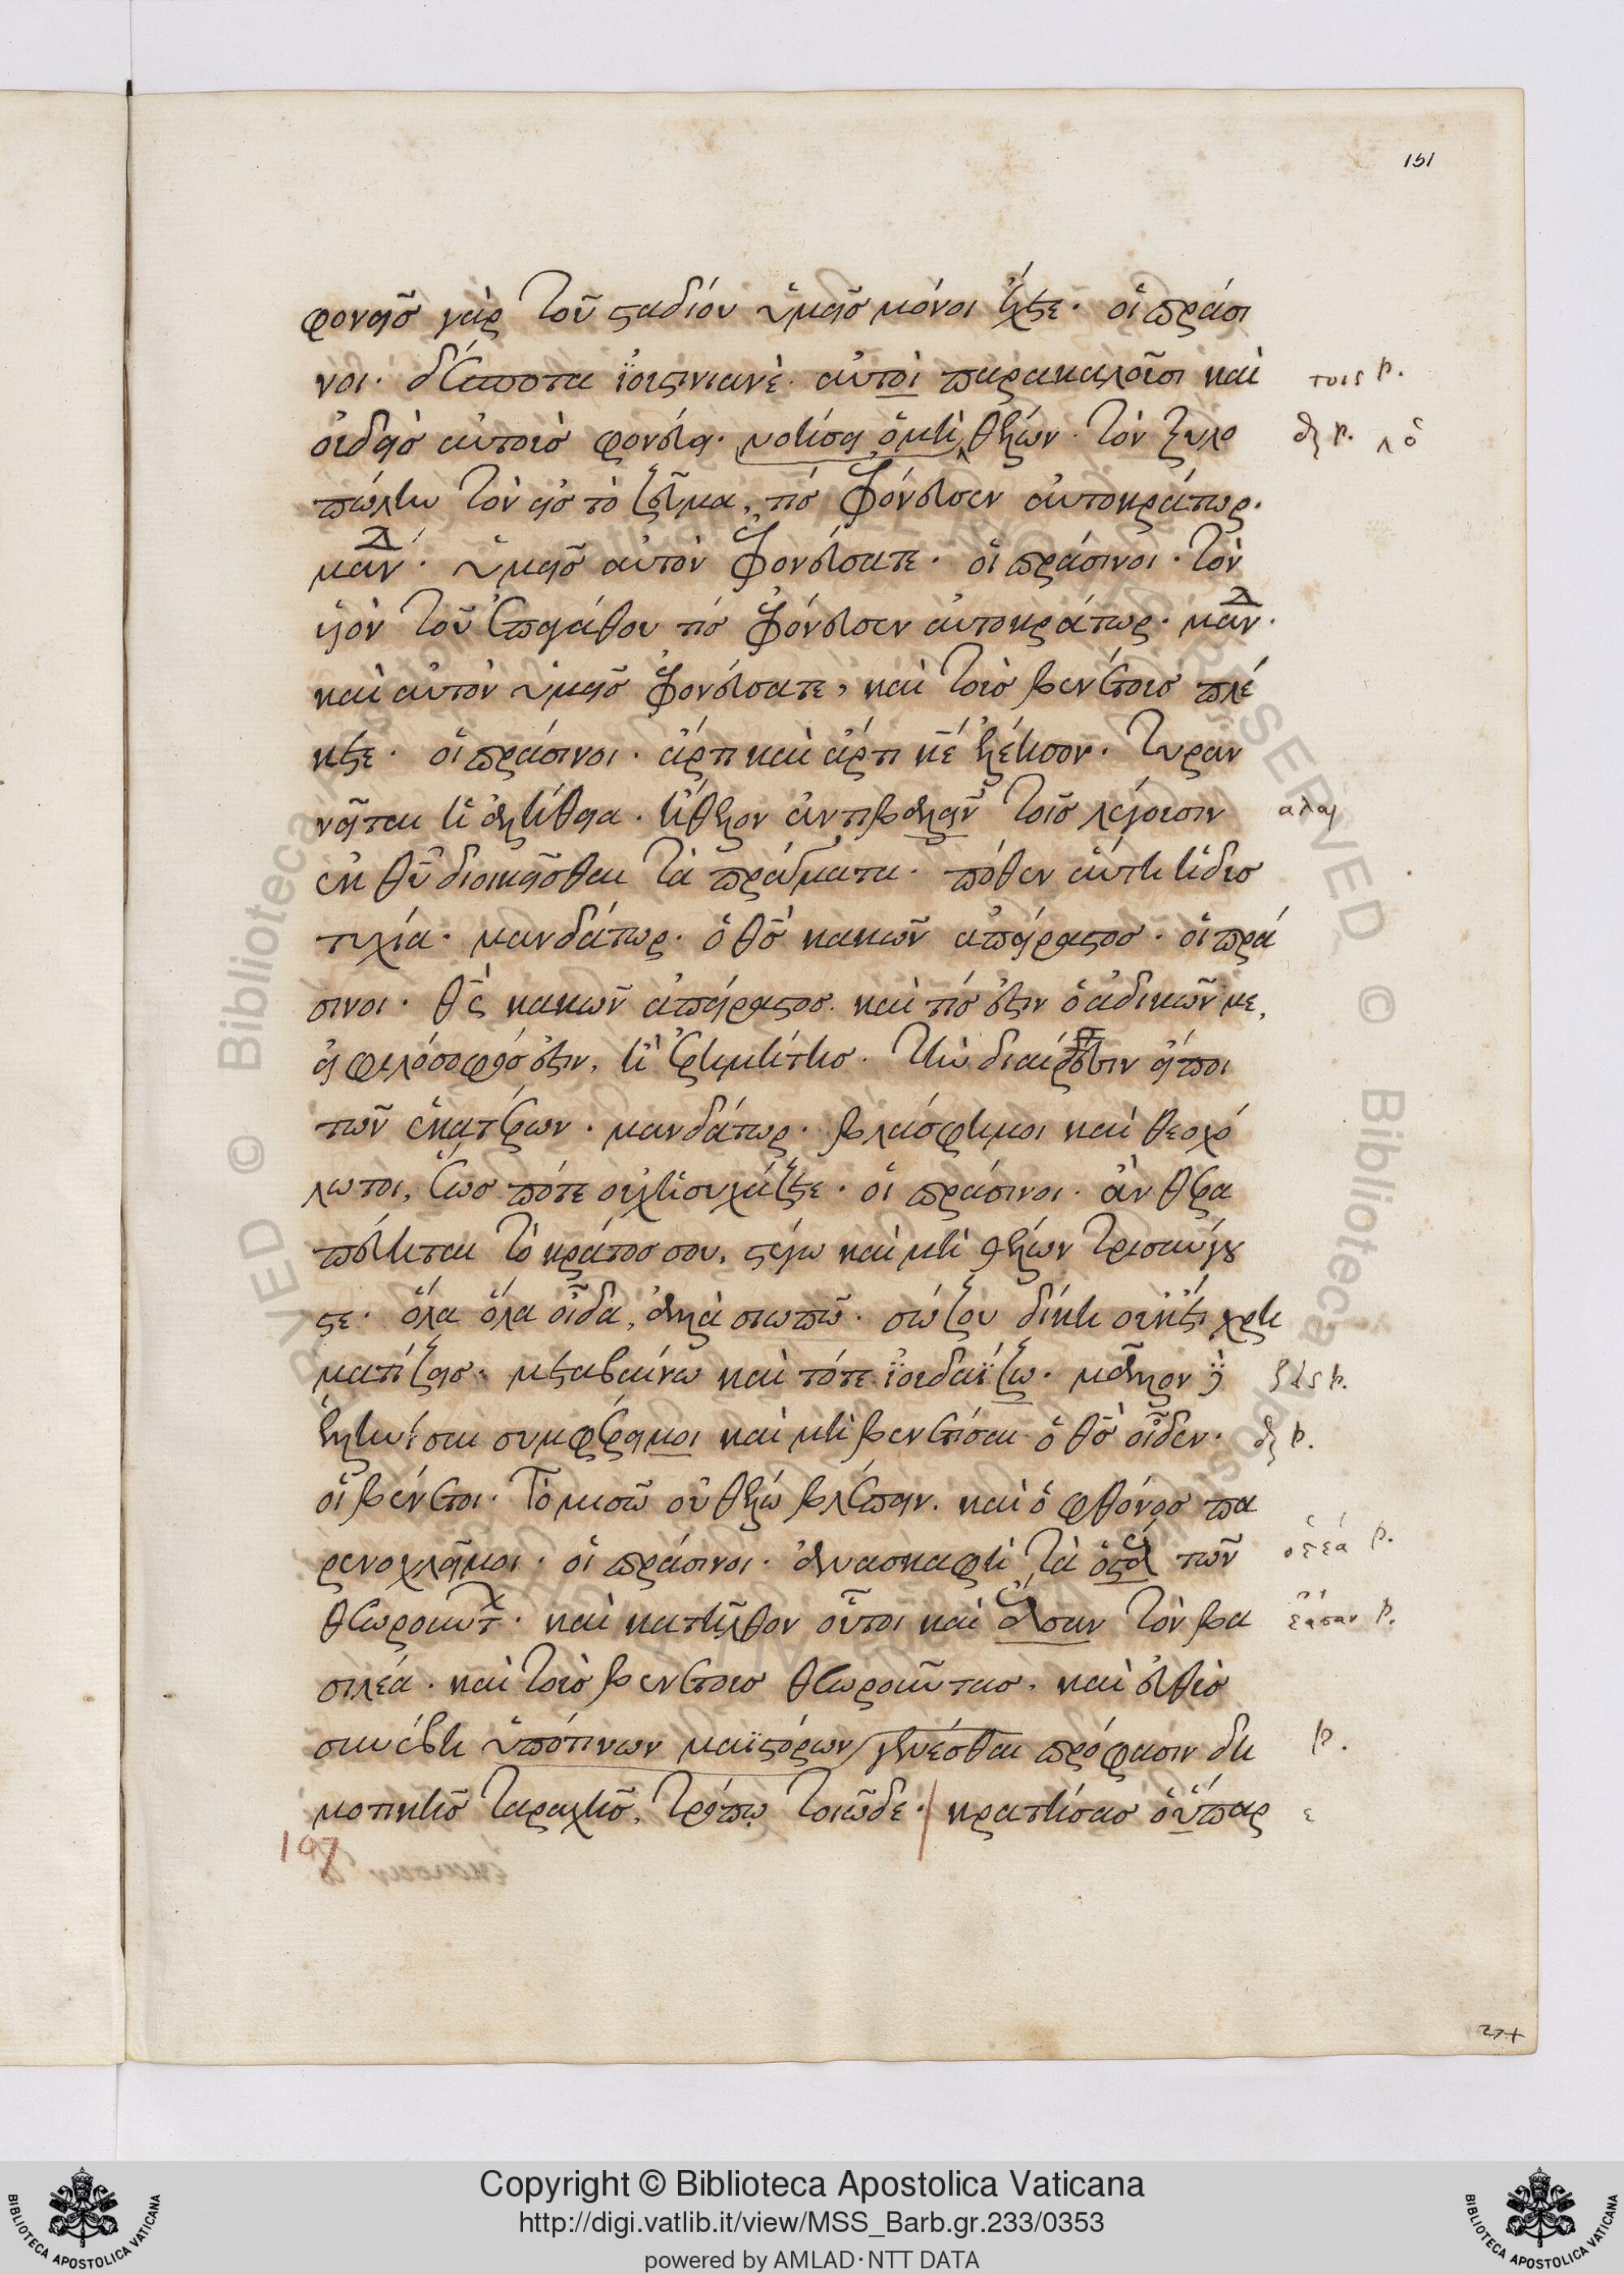 151
φονεῖς γὰρ τοῦ σταδίου ὑμεῖς μόνοι ἔχετε· οἱ πράσι
νοι· δέσποτα ἰουστινιανὲ· αὐτοὶ παρακαλοῦσι καὶ
οὐδεὶς αὐτοὺς φονεύει· νοήσει ὁ μὴ θέλων· τὸν ξυλο
πώλην τὸν εἰς τὸ ζεῦμα, τίς ἐφόνευσεν αὐτοκράτωρ·
μανδ· ὑμεῖς αὐτὸν ἐφονεύσατε· οἱ πράσινοι· τὸν
υἱὸν τοῦ ἐπαγάθου τίς ἐφόνευσεν αὐτοκράτωρ· μανδ·
καὶ αὐτὸν ὑμεῖς ἐφονεύσατε, καὶ τοὺς βενέτους πλέ
κετε· οἱ πράσινοι· ἄρτι καὶ ἄρτι κε ἐλέησον· τυραν
νεῖται ἡ ἀλήθεια· ἤθελον ἀντιβαλεῖν τοῖς λέγουσιν
ἐκ θυ διοικεῖσθαι τὰ πράγματα· πόθεν αὕτη ἡ δυσ
τυχία· μανδάτωρ· ὁ θς κακῶν ἀπείραστος· οἱ πρά
σινοι· θς κακῶν ἀπείραστος· καὶ τίς ἐστιν ὁ ἀδικῶν με,
εἰ φιλόσοφός ἐστιν, ἢ ἐρημίτης· τὴν διαίρεσιν εἴποι
τῶν ἑκατέρων· μανδάτωρ· βλάσφημοι καὶ θεοχό
λωτοι, ἕως πότε οὐχ ἡσυχάζετε· οἱ πράσινοι· ἂν θερα
πεύηται τὸ κράτος σου, στέγω καὶ μὴ θέλων τρισαύγου
στε· ὅλα ὅλα οἶδα, ἀλλὰ σιωπῶ· σώζου δίκη οὐκέτι χρη
ματίζεις· μεταβαίνω καὶ τότε ἰουδαΐζω· μᾶλλον
ἑλληνίσαι συμφέρει μοι καὶ μὴ βενετίσαι ὁ θς οἶδεν·
οἱ βένετοι· τὸ μισῶ οὐ θέλω βλέπειν. καὶ ὁ φθόνος πα
ρενοχλεῖ μοι· οἱ πράσινοι· ἀνασκαφῇ τὰ ὀστέα τῶν
θεωρουντ· καὶ κατῆλθον οὗτοι καὶ εἴασαν τὸν βα
σιλέα· καὶ τοὺς βενέτους θεωροῦντας· καὶ εὐθὺς
συνέβη ὑπό τινων μαϊστόρων γενέσθαι πρόφασιν δη
μοτικῆς ταραχῆς, τρόπῳ τοιῷδε· κρατήσας ὁ ὕπαρ
τους p.
λο
αλαι
p.
ὀστέα p.
εἴασαν p.
p.
ε
197
Copyright © Biblioteca Apostolica Vaticana
http://digi.vatlib.it/view/MSS_Barb.gr.233/0353
powered by AMLAD·NTT DATA
BIBLIOTECA APOSTOLICA VATICANA
BIBLIOTECA APOSTOLICA VATICANA